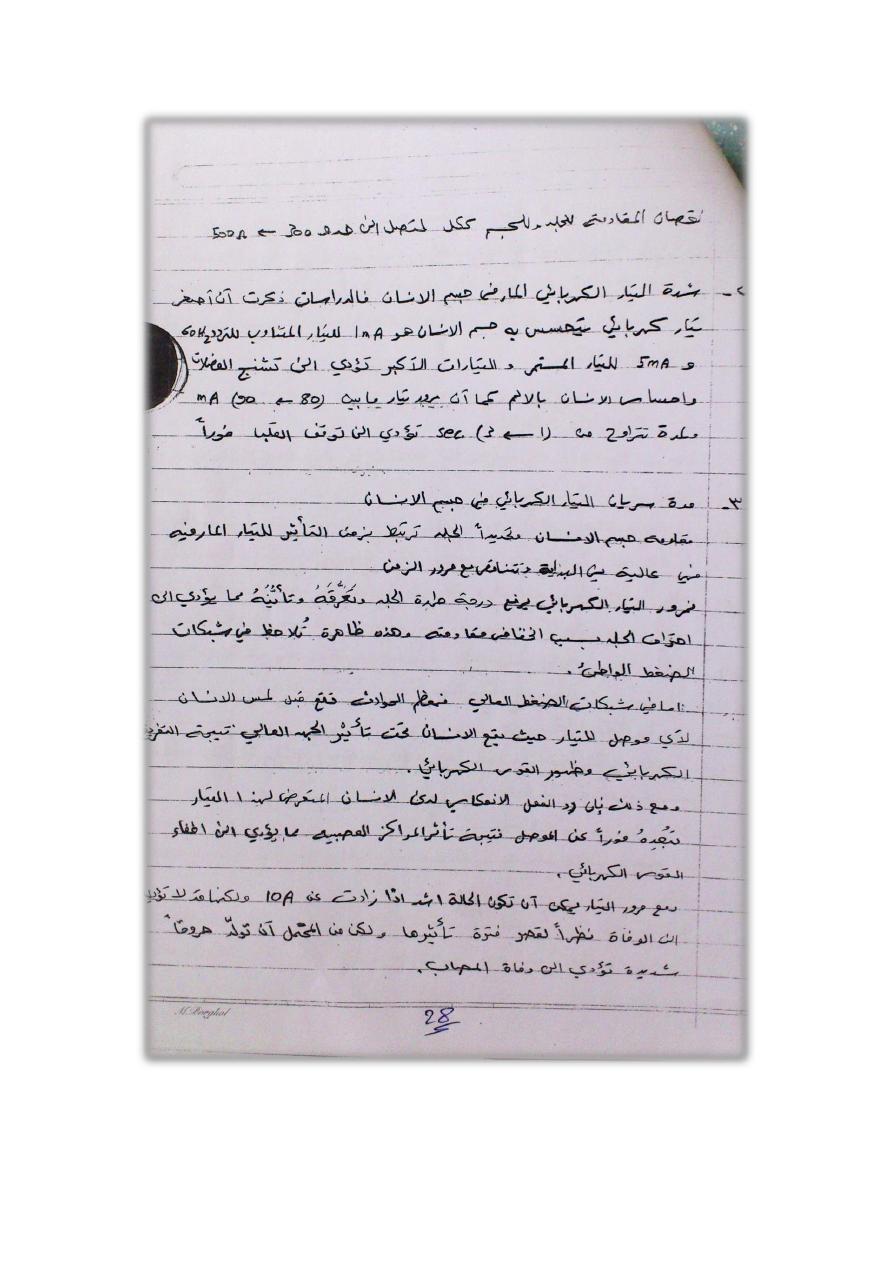 نقصان المقاومة للجلد وللجسم ككل لتصل الى حدود 300 ← 500Ω
٢- شدة التيار الكهربائي المار في جسم الانسان فالدراسات ذكرت أن أصغر
تيار كهربائي يتحسس به جسم الانسان هو 1mA للتيار المتناوب للتردد 60Hz
و 5mA للتيار المستمر و التيارات الأكبر تؤدي الى تشنج العضلات
واحساس الانسان بالالم كما أن مرور تيار ما بين (80 ← 90) mA
ولمدة تتراوح من (1 ← 3) sec تؤدي الى توقف القلب فوراً
٣- مدة سريان التيار الكهربائي في جسم الانسان
مقاومة جسم الانسان وتحديداً الجلد ترتبط بزمن التأثير للتيار المار فيه
فهي عالية في البداية وتتناقص مع مرور الزمن
فمرور التيار الكهربائي يرفع درجة حرارة الجلد وتَعَرُّقَهُ وتأيُّنَهُ مما يؤدي الى
احتراق الجلد بسبب انخفاض مقاومته وهذه ظاهرة تُلاحظ في شبكات
الضغط الواطئ.
اما في شبكات الضغط العالي فمعظم الحوادث تقع قبل لمس الانسان
لأي موصل للتيار حيث يقع الانسان تحت تأثير الجهد العالي نتيجة التفريغ
الكهربائي وظهور القوس الكهربائي.
ومع ذلك فإن رد الفعل الانعكاسي لدى الانسان المتعرض لهذا التيار
تُبْعِدِهُ فوراً عن الموصل نتيجة تأثر المراكز العصبية مما يؤدي الى اطفاء
القوس الكهربائي.
ومع مرور التيار يمكن أن تكون الحالة اشد اذا زادت عن 10A ولكنها قد لا تؤدي
الى الوفاة نظراً لقصر فترة تأثيرها ولكن من المحتمل أن تولّد حروقاً
شديدة تؤدي الى وفاة المصاب.
M.Borghol
28